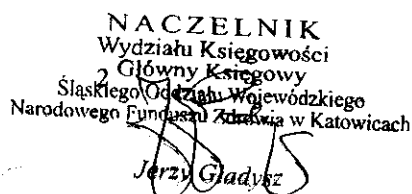 NACZELNIK
Wydziału Księgowości
Główny Księgowy
2
Śląskiego Oddziału Wojewódzkiego
Narodowego Funduszu Zdrowia w Katowicach
Jerzy Gładysz